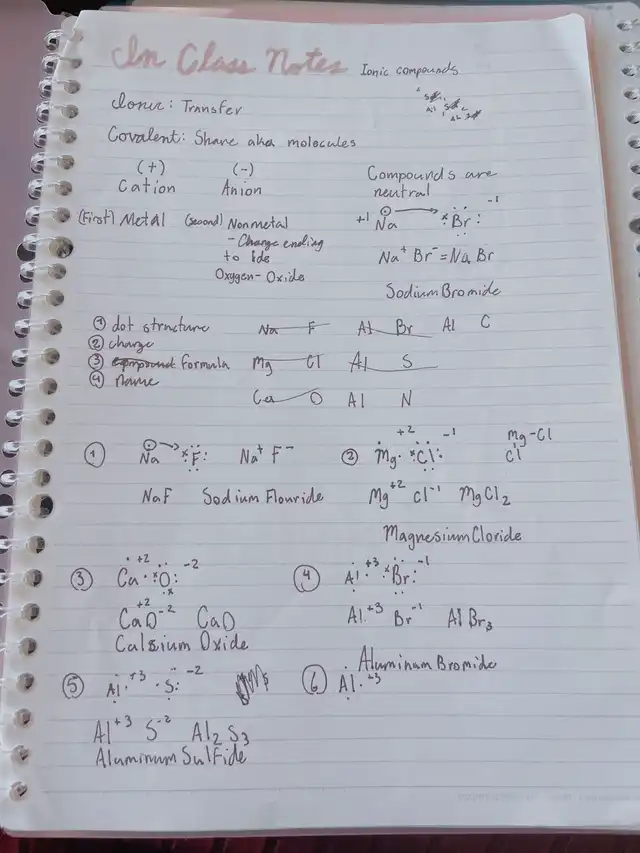 In Class Notes Ionic compounds
Ionic: Transfer
Covalent: Share aka molecules
(+) (-)
Cation Anion
Compounds are
neutral
(First) Metal (second) Nonmetal
- Change ending
to ide
Oxygen- Oxide
+1 Na Br -1
Na⁺ Br⁻ = Na Br
Sodium Bromide
① dot structure
② charge
③ formula
④ name
Na F Al Br Al C
Mg Cl Al S
Ca O Al N
① Na F Na⁺ F⁻
NaF Sodium Flouride
② Mg +2 Cl -1 Mg-Cl
Cl
Mg⁺² Cl⁻¹ MgCl₂
Magnesium Cloride
③ Ca +2 O -2
Ca⁺²O⁻² CaO
Calsium Oxide
④ Al +3 Br -1
Al⁺³ Br⁻¹ AlBr₃
Aluminum Bromide
⑤ Al +3 S -2
Al⁺³ S⁻² Al₂S₃
Aluminum Sulfide
⑥ Al +3